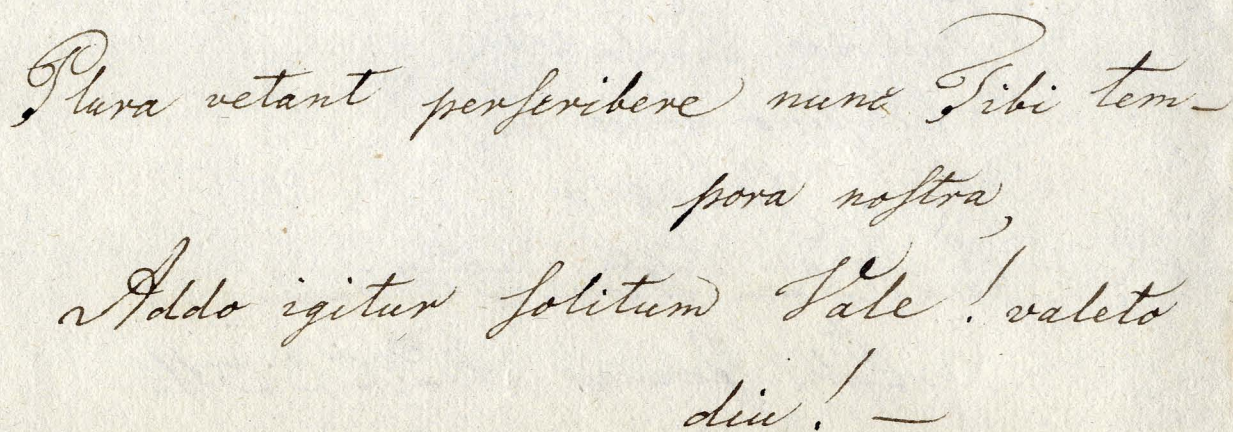 Plura vetant perſcribere nunc Tibi tem-
pora noſtra,
Addo igitur ſolitum Vale! valeto
diu! —